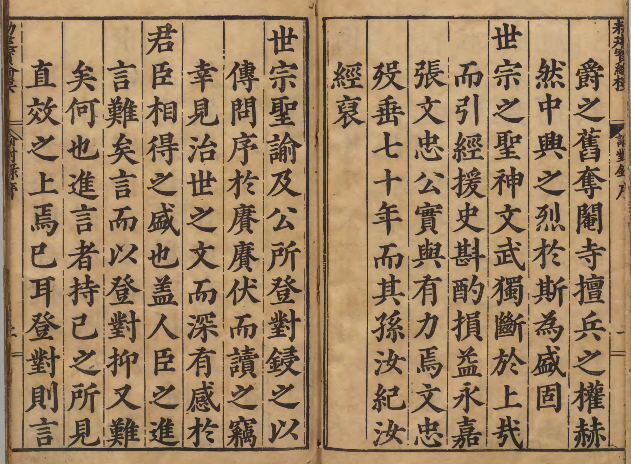 爵之舊奪閹寺擅兵之權赫
然中興之烈於斯為盛固
世宗之聖神文武獨斷於上哉
而引經援史斟酌損益永嘉
張文忠公實與有力焉文忠
歿垂七十年而其孫汝紀汝
經裒
世宗聖諭及公所登對錄之以
傳問序於賡賡伏而讀之竊
幸見治世之文而深有感於
君臣相得之盛也盖人臣之進
言難矣言而以登對抑又難
矣何也進言者持已之所見
直效之上焉已耳登對則言